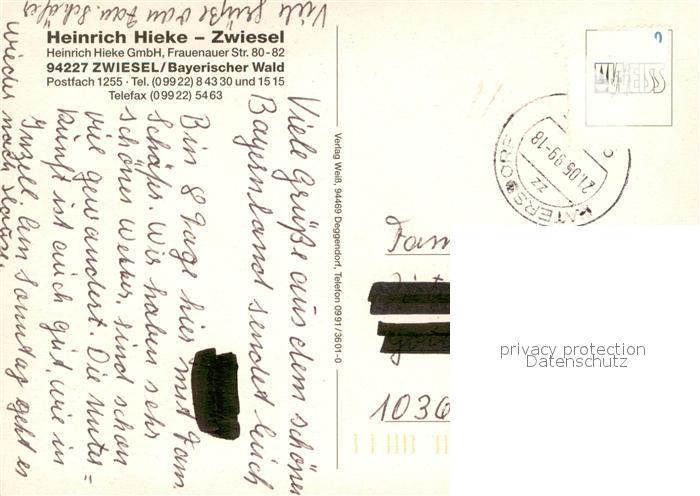 Heinrich Hieke – Zwiesel
Heinrich Hieke GmbH, Frauenauer Str. 80 - 82
94227 ZWIESEL/Bayerischer Wald
Postfach 1255 · Tel. (0 99 22) 8 43 30 und 15 15
Telefax (0 99 22) 54 63
Viele Grüße aus dem schönen
Bayernland sendet Euch
Bin 8 Tage hier mit Fam.
Schäfer. Wir haben sehr
schönes Wetter, sind schon
viel gewandert. Die Unter=
kunft ist auch gut, wie in
Inzell. Am Sonntag geht es
wieder nach Hause.
Viele Grüße v. an Fam. Schäfer
Verlag Weiß, 94469 Deggendorf, Telefon 0991/3601-0
WEISS
PATERSDORF
21.05.99-18
zz
Fam
1036
privacy protection
Datenschutz